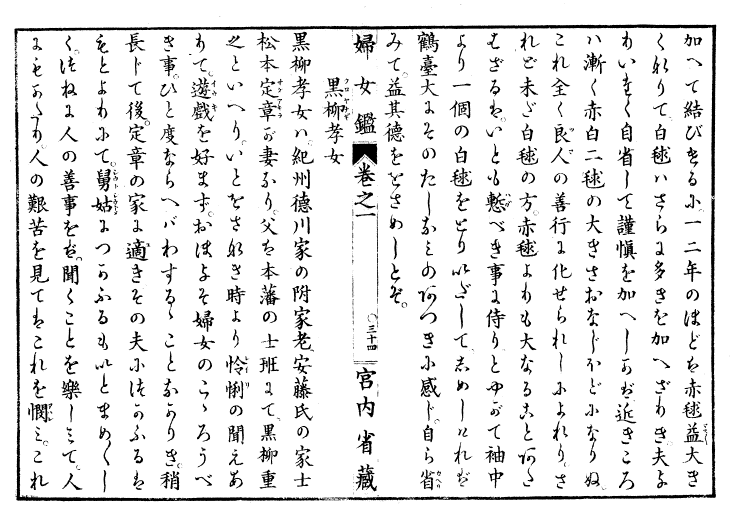 加へて結びけるに、一二年のほどは赤毬益大き
くなりて、白毬はさらに多きを加へざりき、夫よ
りいたく自省して謹愼を加へしかば、近きころ
ハ漸く赤白二毬の大きさおなじほどになりぬ、
これ全く良人の善行に化せられしによれり、さ
れど未だ白毬の方、赤毬よりも大なること あた
はざるは、いとも慙べき事に侍りとやがて袖中
より一個の白毬をとりいだして、しめしければ
鶴臺大にそのたしなみのあつきに感じ、自ら省
みて益其德ををさめしとぞ。
婦女鑑 卷之一 ○三十四 宮内省藏
黒柳孝女
黒柳孝女ハ、紀州德川家の附家老、安藤氏の家士
松本定章が妻なり、父は本藩の士班にて、黒柳重
之といへり、いとをさなき時より怜悧の聞えあ
りて、遊戯を好まず、おほよそ婦女のこゝろうべ
き事、ひと度ならへバわするゝことなかりき、稍
長じて後、定章の家に適きその夫につかふるは
もとよりにて、舅姑につかふるもいとまめ〳〵し
く、つねに人の善事をば、聞くことを樂しミて、人
にもかたり、人の艱苦を見てはこれを憫ミ、これ